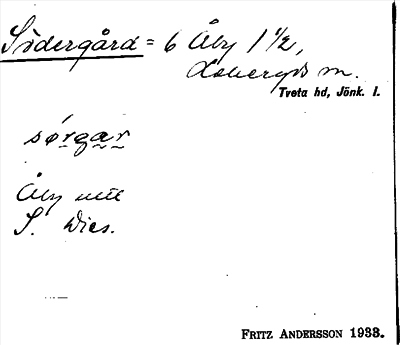 Södergård = 6 Åby 1 1/2,
m.
Tveta hd, Jönk. l.
sørgar
Åby
S. Dies.
FRITZ ANDERSSON 1933.